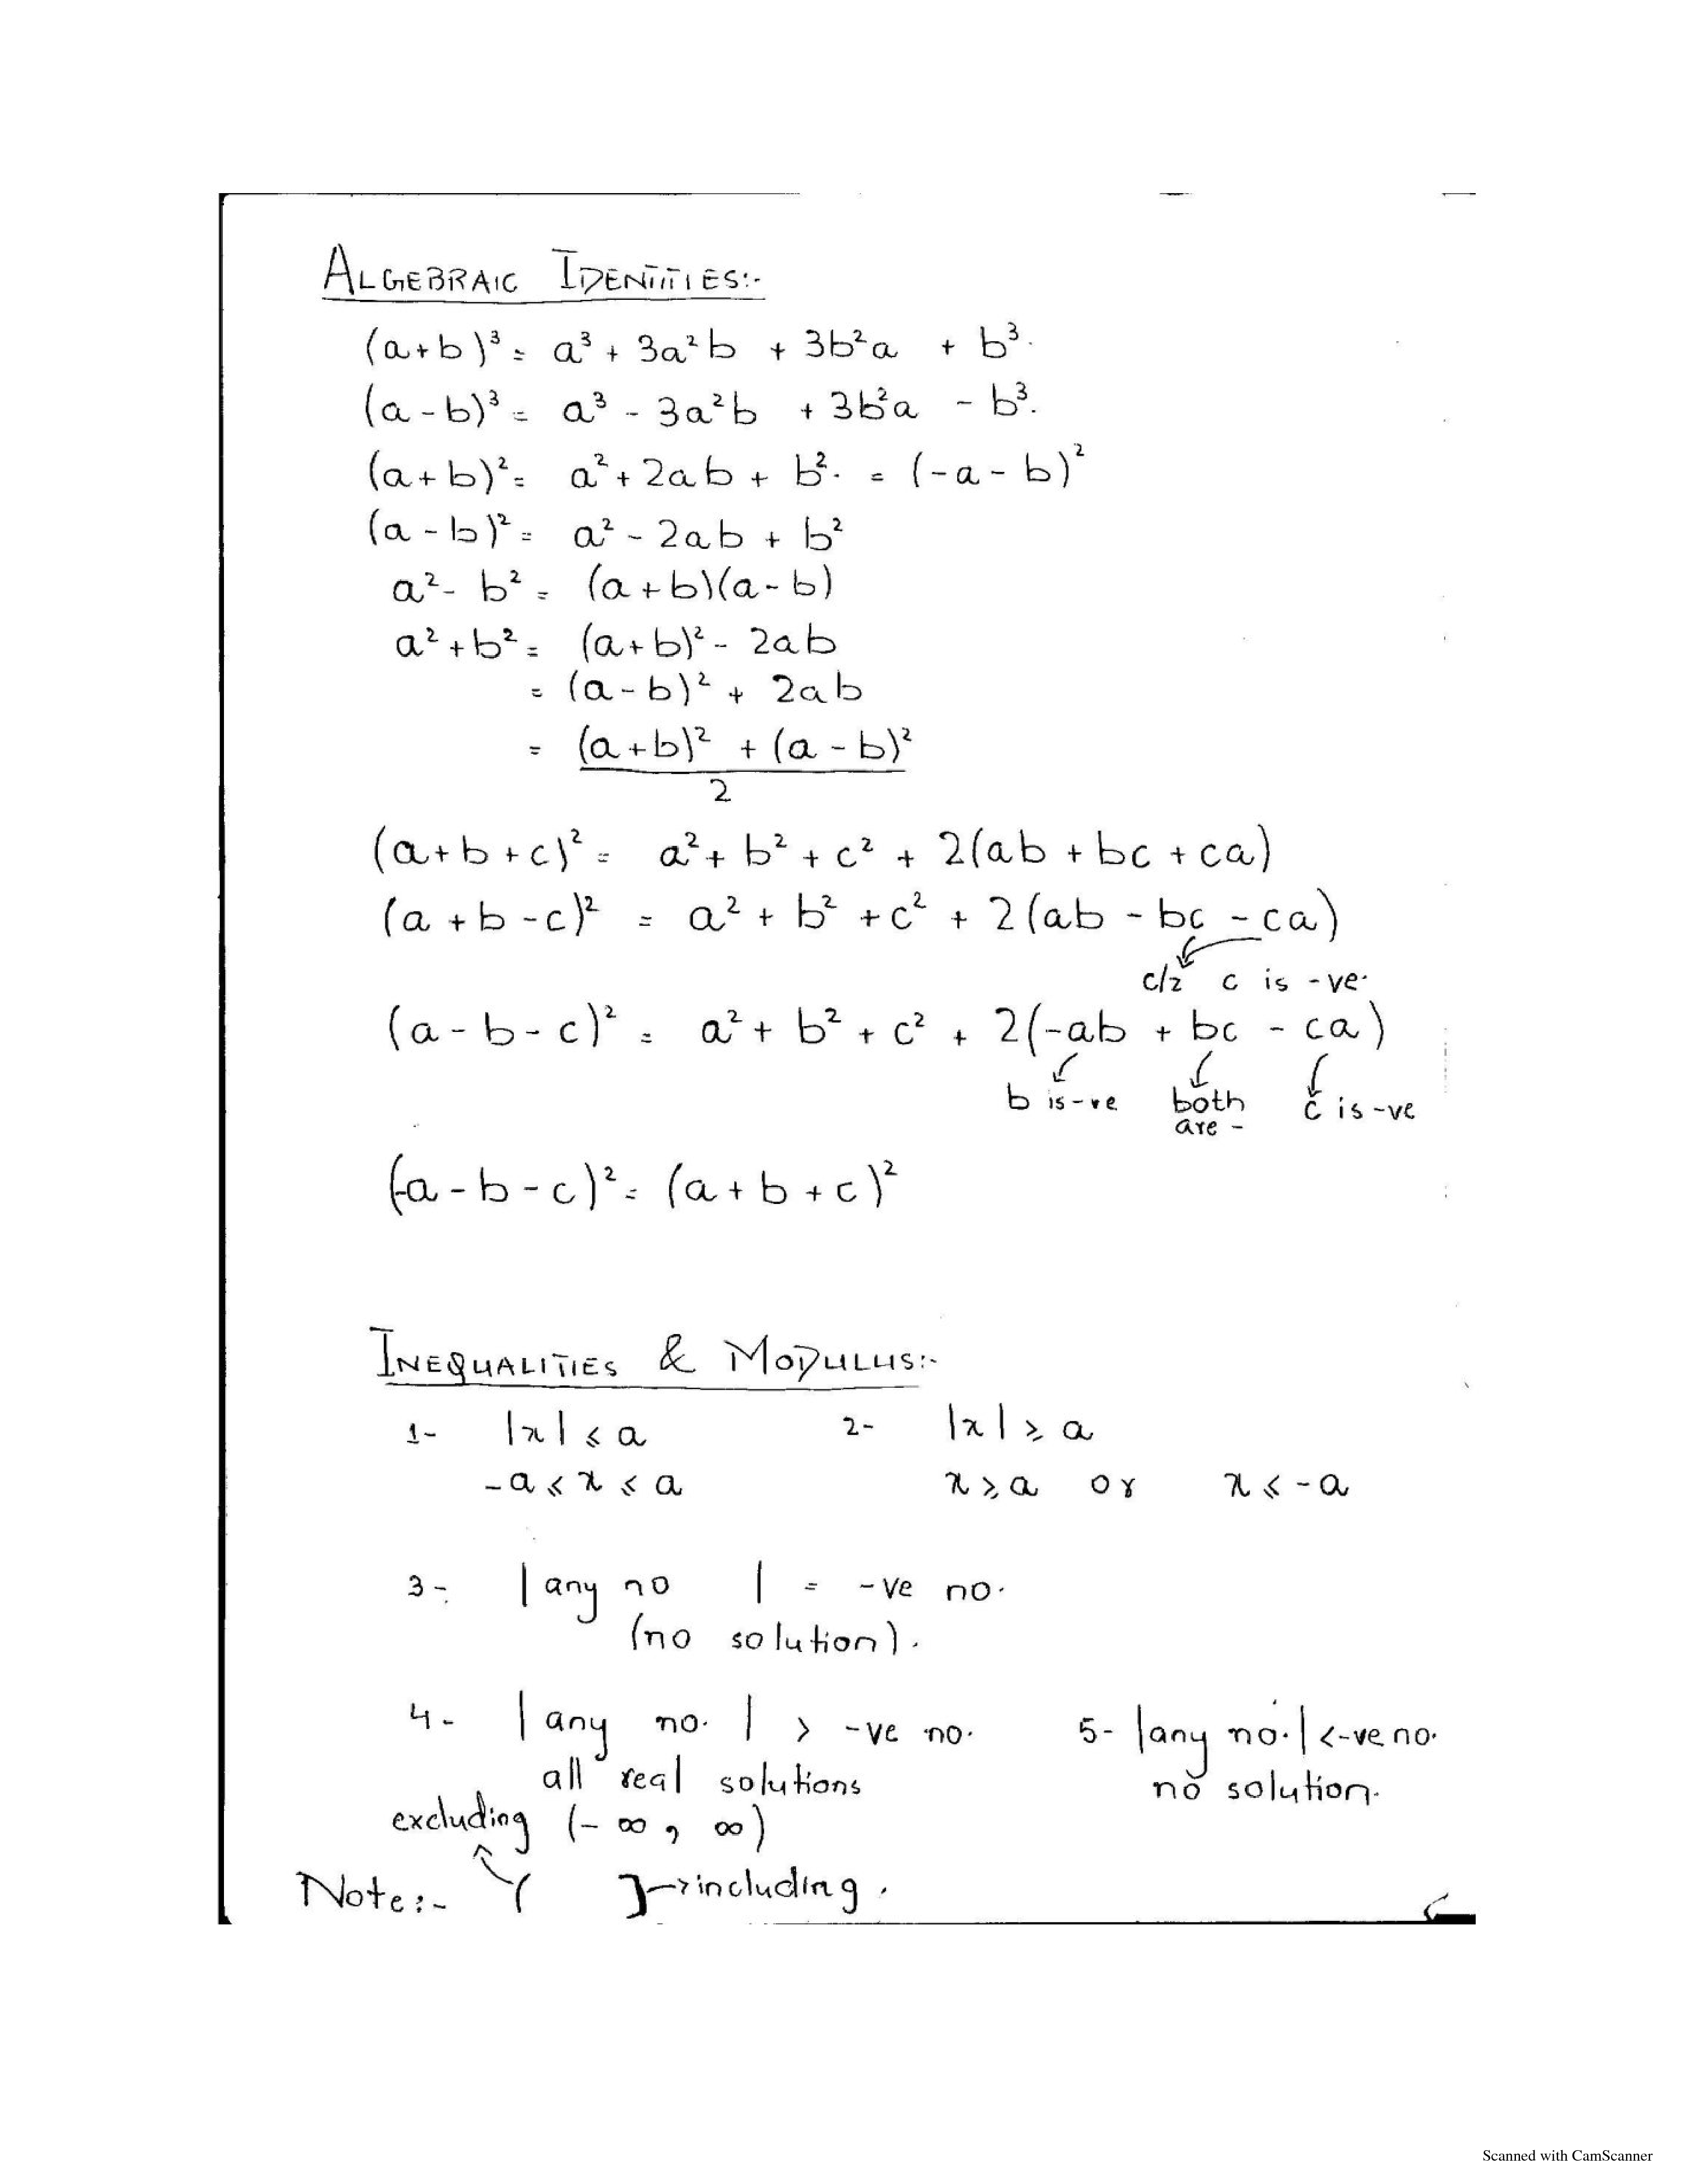 ALGEBRAIC IDENTITIES:-
(a+b)³ = a³ + 3a²b + 3b²a + b³.
(a-b)³ = a³ - 3a²b + 3b²a - b³.
(a+b)² = a² + 2ab + b². = (-a-b)²
(a-b)² = a² - 2ab + b²
a² - b² = (a+b)(a-b)
a² + b² = (a+b)² - 2ab
= (a-b)² + 2ab
= (a+b)² + (a-b)²
2
(a+b+c)² = a² + b² + c² + 2(ab + bc + ca)
(a+b-c)² = a² + b² + c² + 2(ab - bc - ca)
c/z c is -ve.
(a-b-c)² = a² + b² + c² + 2(-ab + bc - ca)
b is -ve both c is -ve
are -
(-a-b-c)² = (a+b+c)²
INEQUALITIES & MODULUS:-
1- |x| ⩽ a 2- |x| ⩾ a
-a ⩽ x ⩽ a x ⩾ a or x ⩽ -a
3- | any no | = -ve no.
(no solution).
4- | any no. | > -ve no. 5- |any no.| < -ve no.
all real solutions no solution.
excluding (-∞, ∞)
Note:- ( ] → including.
Scanned with CamScanner